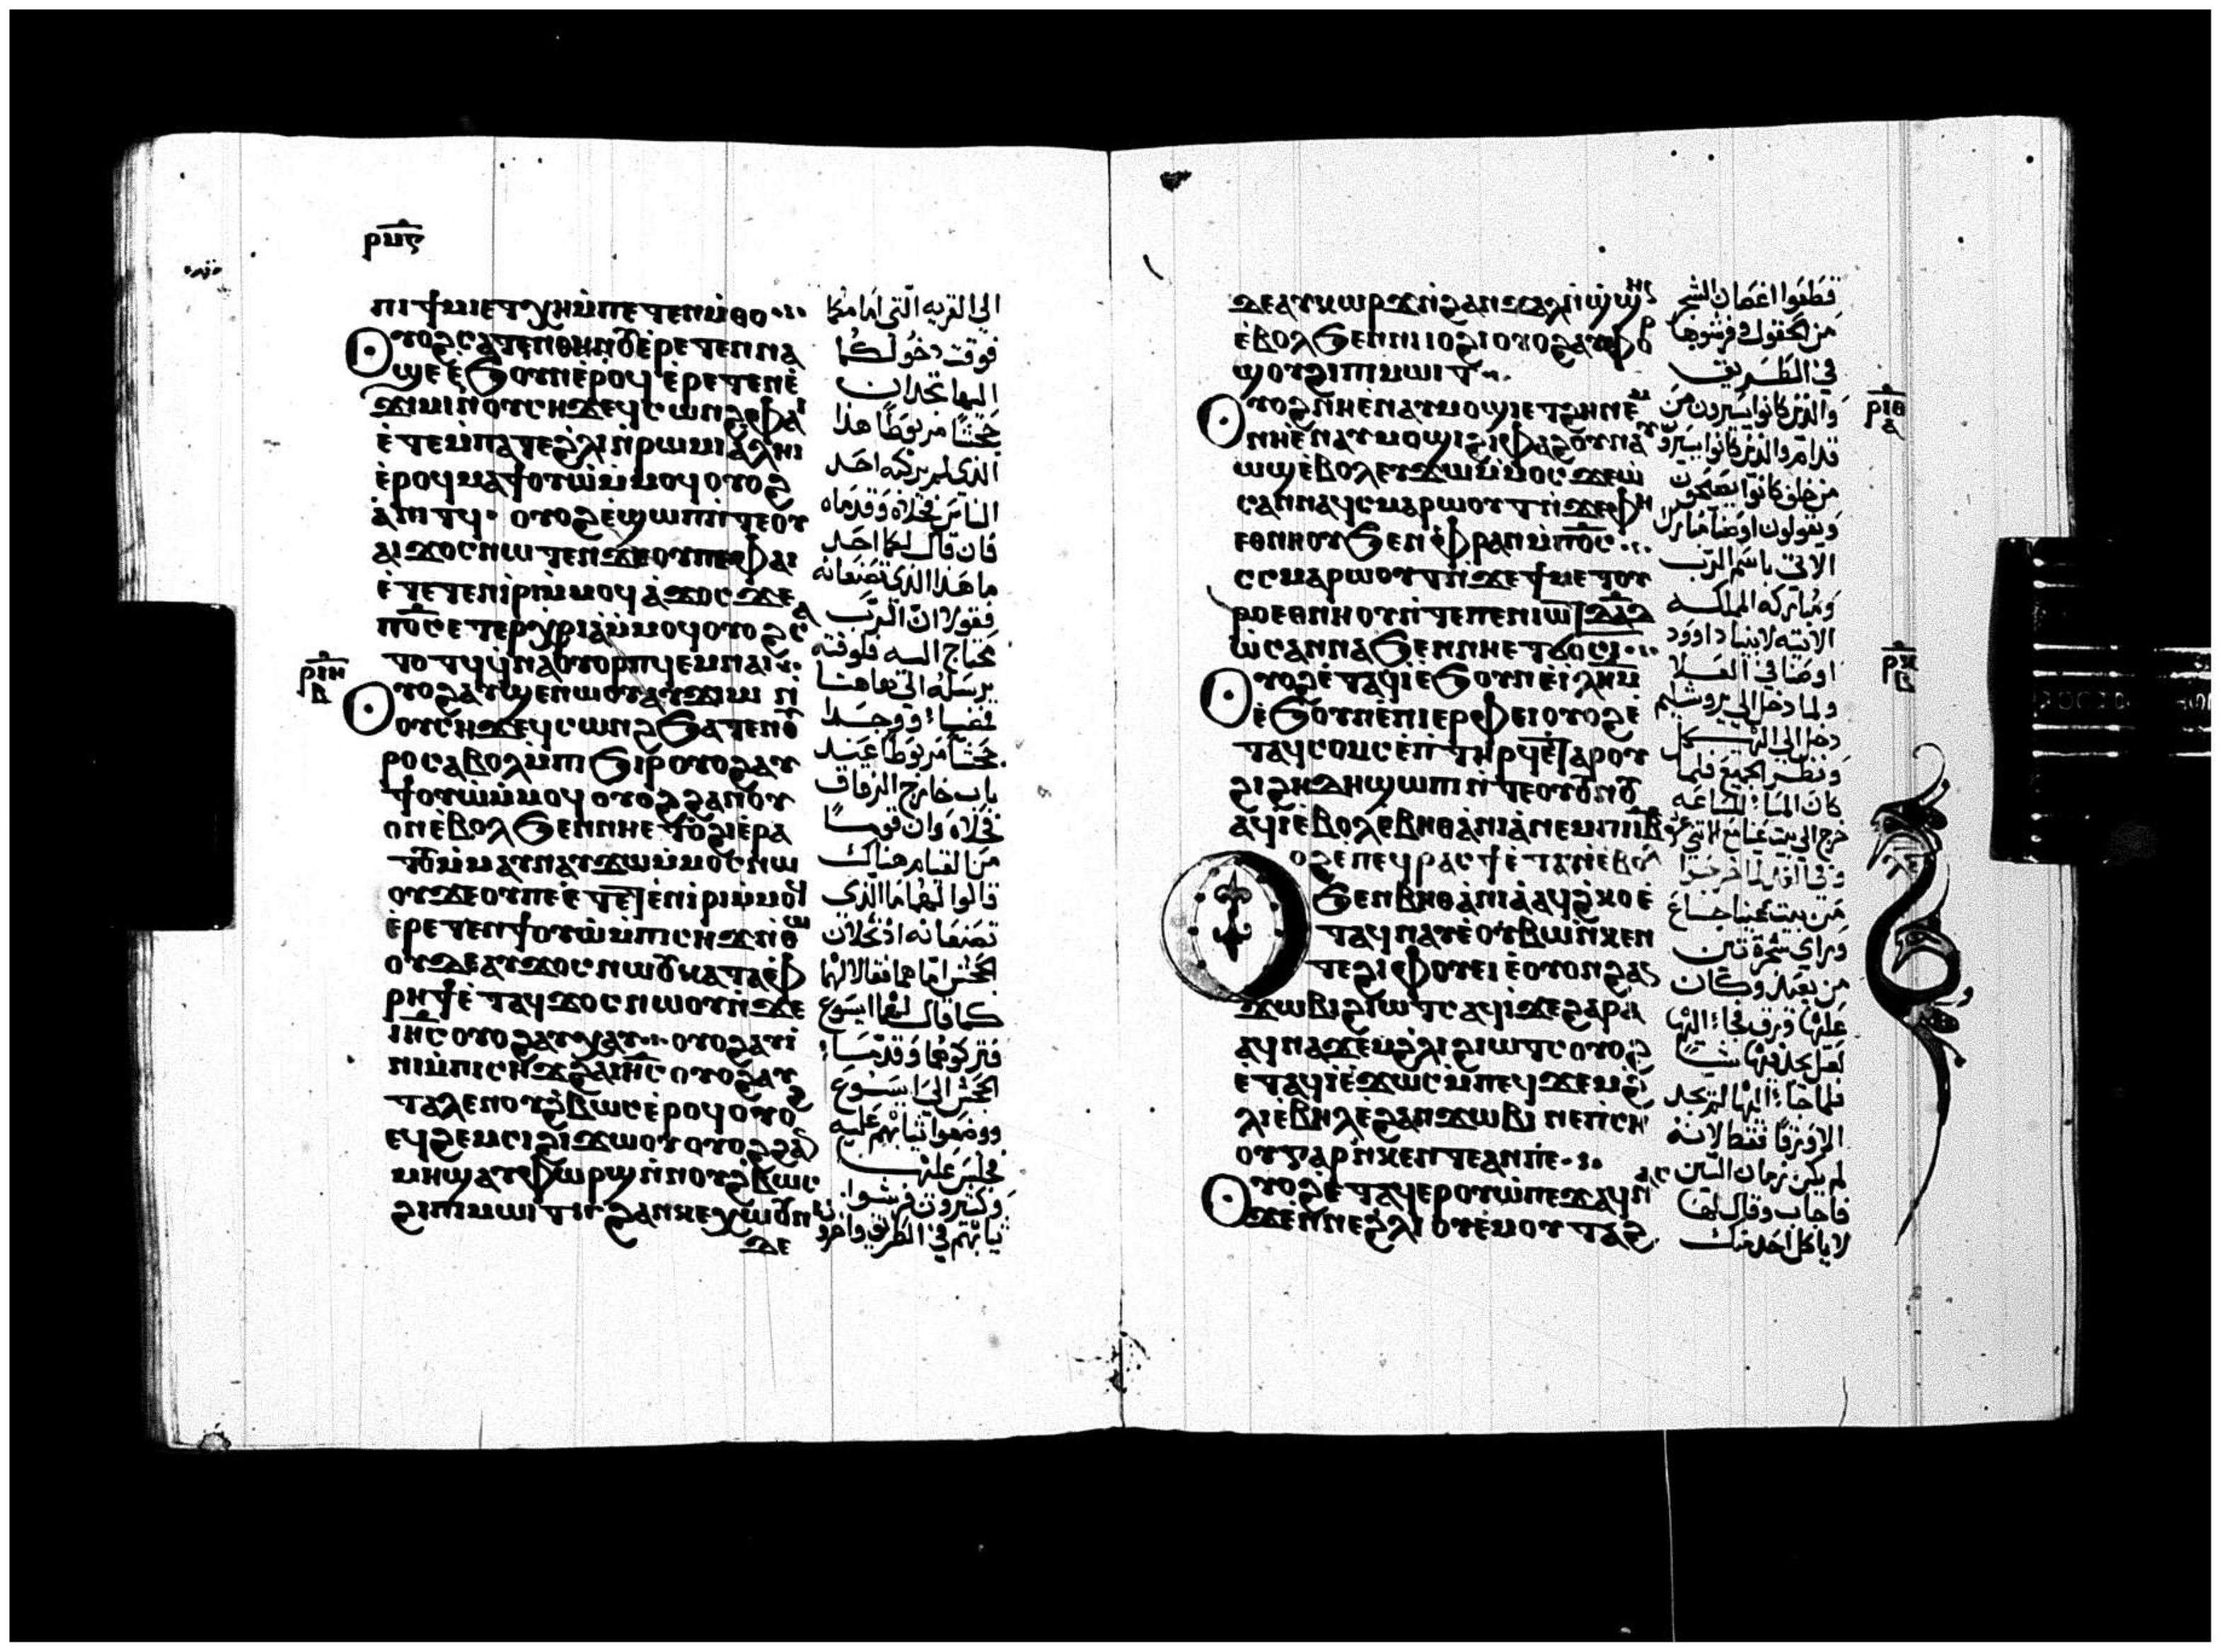 ⲣⲙⲋ
ⲡⲓϯⲙⲓ ⲉⲧⲭⲏ ⲙ̇ⲡⲉⲧⲉⲛⲙ̇ⲑⲟ
ⲟⲩⲟϩ ⲥⲁⲧⲉⲛⲑⲏⲛⲟⲩ ⲉ̇ⲣⲉⲧⲉⲛⲛⲁ
ϣⲉ ⲉ̇ϧⲟⲩⲛ ⲉ̇ⲣⲟϥ ⲉ̇ⲣⲉⲧⲉⲛⲉ̇
ϫⲓⲙⲓ ⲛ̇ⲟⲩⲥⲏϫ ⲉϥⲥⲱⲛϩ ⲫⲁⲓ
ⲉ̇ⲧⲉ ⲙ̇ⲡⲁⲧⲉ ϩ̇ⲗⲓ ⲛ̇ⲣⲱⲙⲓ ⲁ̇ⲗⲏⲓ
ⲉ̇ⲣⲟϥ ⲙⲁϯⲟⲩⲱ ⲙ̇ⲙⲟϥ ⲟⲩⲟϩ
ⲁ̇ⲛⲓⲧϥ ⲟⲩⲟϩ ⲉ̇ϣⲱⲡ ⲛ̇ⲧⲉ ⲟⲩ
ⲁⲓ ϫⲟⲥ ⲛⲱⲧⲉⲛ ϫⲉ ⲟⲩ ⲡⲉ ⲫⲁⲓ
ⲉ̇ⲧⲉⲧⲉⲛⲓ̇ⲣⲓ ⲙ̇ⲙⲟϥ ⲁ̇ϫⲟⲥ ϫⲉ
ⲡⲟ̅ⲥ̅ ⲉⲧⲉⲣⲭⲣⲓⲁ̇ ⲙ̇ⲙⲟϥ ⲟⲩⲟϩ ⲥ
ⲧⲟⲧϥ ϥ̇ⲛⲁⲟⲩⲟⲣⲡϥ ⲉⲙⲛⲁⲓ
ⲣⲓⲏ ⲃ
ⲟⲩⲟϩ ⲁⲩϣⲉⲛⲱⲟⲩ ⲁⲩϫⲓⲙⲓ ⲛ̇
ⲟⲩⲥⲏϫ ⲉϥⲥⲱⲛϩ ϧⲁⲧⲉⲛ ⲟⲩ
ⲣⲟ ⲥⲁⲃⲟⲗ ⲙ̇ⲡⲓϧⲓⲣ ⲟⲩⲟϩ ⲁⲩ
ϯⲟⲩⲱ ⲙ̇ⲙⲟϥ ⲟⲩⲟϩ ϩⲁⲛⲟⲩ
ⲟⲛ ⲉ̇ⲃⲟⲗ ϧⲉⲛ ⲛⲏⲉⲧⲟ̇ϩⲓ ⲉ̇ⲣⲁ
ⲧⲟⲩ ⲙ̇ⲙⲁⲩ ⲛⲁⲩϫⲱ ⲙ̇ⲙⲟⲥ ⲛⲱ
ⲟⲩ ϫⲉ ⲟⲩ ⲡⲉ ⲉ̇ⲧⲉⲧⲉⲛⲓ̇ⲣⲓ ⲙ̇ⲙⲟϥ
ⲉ̇ⲣⲉⲧⲉⲛϯⲟⲩⲱ ⲙ̇ⲡⲓⲥⲏϫ ⲛ̇ⲑⲱ
ⲟⲩ ϫⲉ ⲁⲩϫⲟⲥ ⲛⲱⲟⲩ ⲕⲁⲧⲁ ⲫ̇
ⲣⲏϯ ⲉ̇ⲧⲁϥϫⲟⲥ ⲛⲱⲟⲩ ⲛ̇ϫⲉ
ⲓⲏ̅ⲥ̅ ⲟⲩⲟϩ ⲁⲩⲭⲁⲩ ⲟⲩⲟϩ ⲁⲩⲓ̇
ⲛⲓ ⲙ̇ⲡⲓⲥⲏϫ ϩⲁ ⲓⲏ̅ⲥ̅ ⲟⲩⲟϩ ⲁⲩ
ⲧⲁⲗⲉ ⲛⲟⲩϩ̇ⲃⲱⲥ ⲉ̇ⲣⲟϥ ⲟⲩⲟϩ
ⲉϥϩⲉⲙⲥⲓ ϩⲓϫⲱⲟⲩ ⲟⲩⲟϩ ϩⲁⲛ
ⲙⲏϣ ⲁⲩⲫⲱⲣϣ ⲛ̇ⲛⲟⲩϩ̇ⲃⲱⲥ
ϩⲓ ⲡⲓⲙⲱⲓⲧ ϩⲁⲛⲕⲉⲭⲱⲟⲩⲛⲓ
ϫⲉ
الى القريه التى امامكما
فوقت دخولكما
اليها تجدان
جحشًا مربوطًا هذا
الذى لم يركبه احد
الناس فحلاه وقدماه
فان قال لكما احد
ما هذا الذى تصنعانه
فقولا ان الرب
محتاج اليه فلوقته
يرسله الى هاهنا
فمضيا ووجدا
جحشًا مربوطًا عند
باب خارج الزقاق
فحلاه وان قومًا
من القيام هناك
قالوا لهما ما الذى
تصنعانه اذ تحلان
الجحش اما هما فقالا لهم
كما قال لهما ايسوع
فتركوهما وقدما
الجحش الى ايسوع
ووضعوا ثيابهم عليه
فجلس عليها
وكثيرون فرشوا
ثيابهم فى الطريق واخرون
ϫⲉ ⲁⲩⲕⲱⲣϫ ⲛ̇ϩⲁⲛϫⲁⲗ ⲛ̇ϣ̇ϣⲏⲛ
ⲉ̇ⲃⲟⲗ ϧⲉⲛ ⲛⲓⲓⲟϩⲓ ⲟⲩⲟϩ ⲁⲩⲫⲟⲣ
ϣⲟⲩ ϩⲓ ⲡⲓⲙⲱⲓⲧ
ⲟⲩⲟϩ ⲛⲏ ⲉ̇ⲛⲁⲩⲙⲟϣⲓ ⲉⲧϩⲏ ⲛⲉⲙ
ⲛⲏ ⲉ̇ⲛⲁⲩⲙⲟϣⲓ ϩⲓ ⲫⲁϩⲟⲩ ⲛⲁⲩ
ⲱϣ ⲉ̇ⲃⲟⲗ ⲉⲩϫⲱ ⲙ̇ⲙⲟⲥ ϫⲉ ⲱ̇
ⲥⲁⲛⲛⲁ ϥ̇ⲥⲙⲁⲣⲱⲟⲩⲧ ⲛ̇ϫⲉ ⲫⲏ
ⲉⲑⲛⲏⲟⲩ ϧⲉⲛ ⲫ̇ⲣⲁⲛ ⲙ̇ⲡⲟ̅ⲥ̅
ⲥ̇ⲥⲙⲁⲣⲱⲟⲩⲧ ⲛ̇ϫⲉ ϯⲙⲉⲧⲟⲩ
ⲣⲟ ⲉⲑⲛⲏⲟⲩ ⲛ̇ⲧⲉ ⲡⲉⲛⲓⲱⲧ ⲇⲁ̅ⲇ̅
ⲱ̇ⲥⲁⲛⲛⲁ ϧⲉⲛ ⲛⲏⲉⲧϭⲟⲥⲓ
ⲣⲓⲑ ⲁ
ⲣⲕ ⲃ
ⲟⲩⲟϩ ⲉ̇ⲧⲁϥⲓ̇ ⲉ̇ϧⲟⲩⲛ ⲉ̇ⲓ̇ⲗⲏⲙ
ⲉ̇ϧⲟⲩⲛ ⲉ̇ⲡⲓⲉⲣⲫⲉⲓ ⲟⲩⲟϩ ⲉ̇
ⲧⲁϥⲥⲟⲙⲥ ⲉ̇ⲡⲧⲏⲣϥ ⲉ̇ⲧⲁ ⲣⲟⲩ
ϩⲓ ϩⲏⲇⲏ ϣⲱⲡⲓ ⲛ̇ⲧⲉ ϯⲟⲩⲛⲟⲩ
ⲁϥⲓ̇ ⲉ̇ⲃⲟⲗ ⲉ̇ⲃⲏⲑⲁ̇ⲛⲓⲁ̇ ⲛⲉⲙ ⲡⲓⲓ̅ⲃ̅
ⲟⲩⲟϩ ⲡⲉϥⲣⲁⲥϯ ⲉ̇ⲧⲁⲩⲓ̇ ⲉ̇ⲃⲟⲗ
ϧⲉⲛ ⲃⲏⲑⲁ̇ⲛⲓⲁ̇ ⲁϥϩ̇ⲕⲟ ⲉ̇
ⲧⲁϥⲛⲁⲩ ⲉ̇ⲟⲩⲃⲱ ⲛ̇ⲕⲉⲛ
ⲧⲉ ϩⲓ ⲫⲟⲩⲉⲓ ⲉ̇ⲟⲩⲟⲛ ϩⲁⲛ
ϫⲱⲃⲓ ϩⲓⲱⲧⲥ ⲁϥⲓ̇ ϫⲉ ϩⲁⲣⲁ
ϥⲛⲁϫⲉⲙ ϩ̇ⲗⲓ ϩⲓⲱⲧⲥ ⲟⲩⲟϩ
ⲉ̇ⲧⲁϥⲓ̇ ⲉ̇ϫⲱⲥ ⲙ̇ⲡⲉϥϫⲉⲙ ϩ̇
ⲗⲓ ⲉ̇ⲃⲏⲗ ⲉ̇ϩⲁⲛϫⲱⲃⲓ ⲛⲉ ⲡ̇ⲥⲏ
ⲟⲩ ⲅⲁⲣ ⲛ̇ⲕⲉⲛⲧⲉ ⲁⲛ ⲡⲉ
ⲟⲩⲟϩ ⲉ̇ⲧⲁϥⲉⲣⲟⲩⲱ̇ ⲡⲉϫⲁϥ ⲛⲁⲥ
ϫⲉ ⲛ̇ⲛⲉ ϩ̇ⲗⲓ ⲟⲩⲉⲙ ⲟⲩⲧⲁϩ
قطعوا اغصان الشجر
من الحقول وفرشوها
فى الطريق
والذين كانوا يسيرون من
قدام والذين كانوا يسيرون
من خلف كانوا يصيحون
ويقولون اوصنا مبارك
الاتى باسم الرب
ومباركه المملكه
الاتيه لابينا داوود
اوصنا فى العلا
ولما دخل الى يروشليم
دخل الى الهيكل
ونظر الجميع فلما
كان المساء
خرج الى بيت عنيا مع الاثنى عشر
وفى الغد لما خرجوا
من بيت عنيا جاع
وراى شجرة تين
من بعيد وكان
عليها ورق فجاء اليها
لعل يجد فيها شيئًا
فلما جاء اليها لم يجد
الا ورقًا فقط لانه
لم يكن زمان التين
فاجاب وقال لها
لا ياكل احد منك